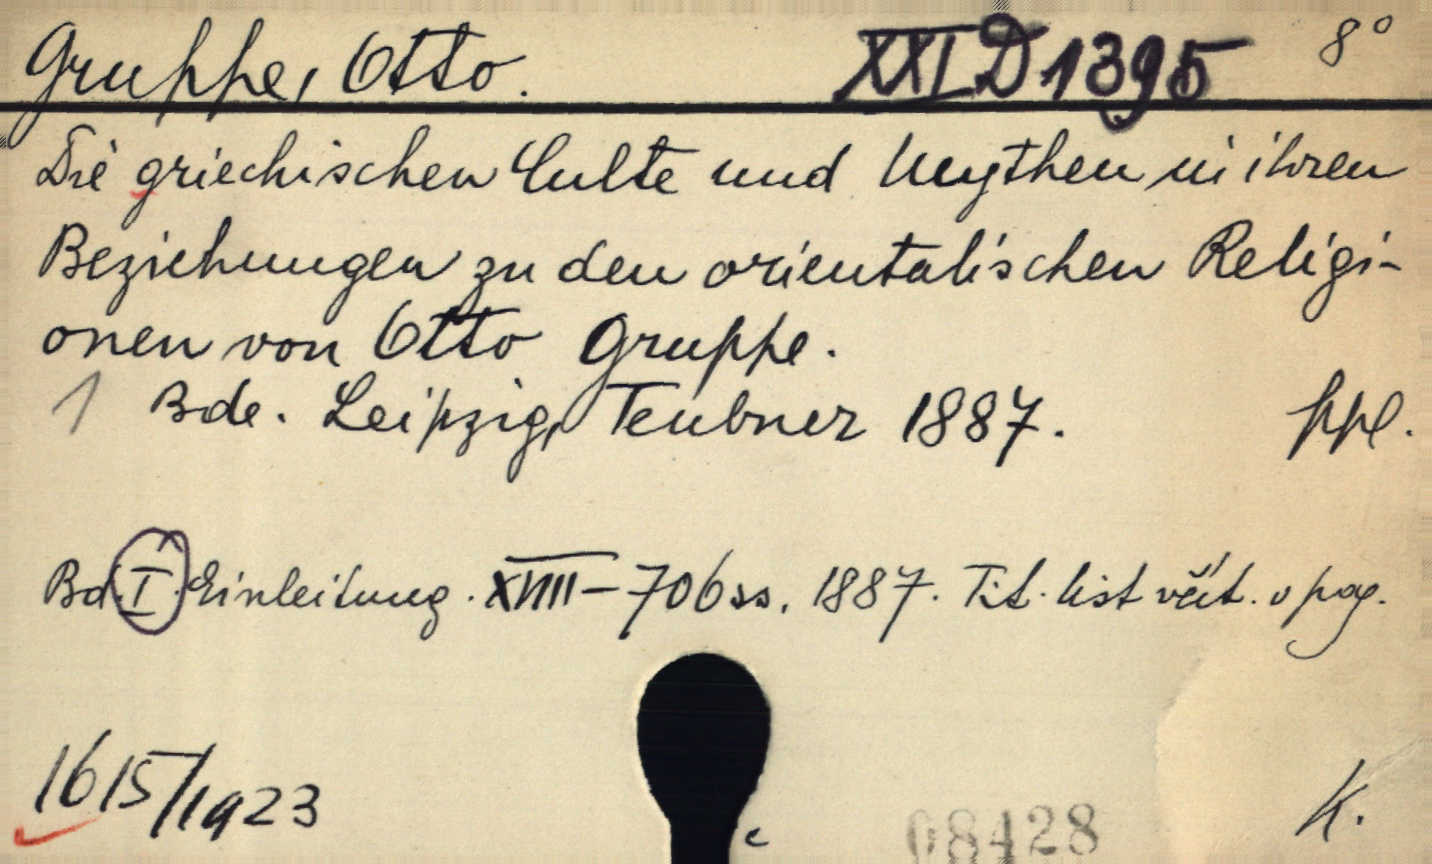 Gruppe, Otto. XXI D 1395 8°
Die griechischen Culte und Mythen in ihren
Beziehungen zu den orientalischen Religi-
onen von Otto Gruppe.
1 Bde. Leipzig, Teubner 1887. ppl.
Bd. I. Einleitung. XVIII-706 ss. 1887. Tit. list včít. v pag.
1615/1923 K.
c 08428